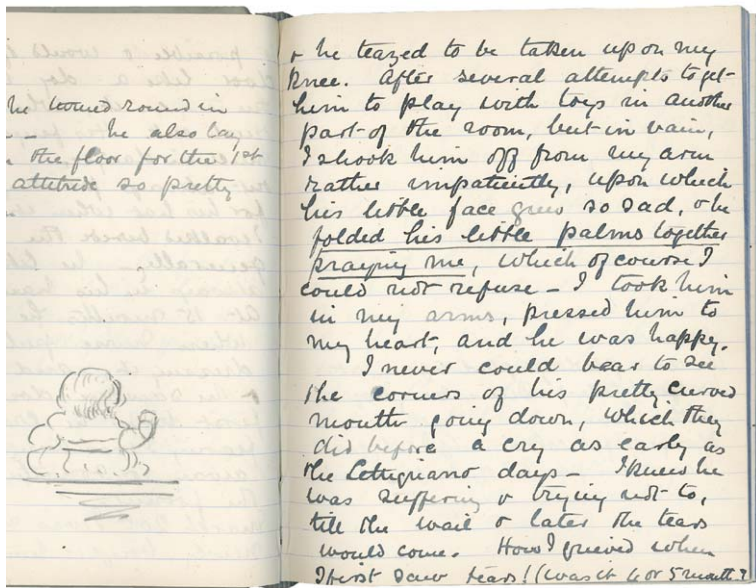 he turned round in
he also lay
the floor for the 1st
attitude so pretty
& he teazed to be taken up on my
knee. After several attempts to get
him to play with toys in another
part of the room, but in vain,
I shook him off from my arm
rather impatiently, upon which
his little face grew so sad, & he
folded his little palms together
praying me, which of course I
could not refuse – I took him
in my arms, pressed him to
my heart, and he was happy.
I never could bear to see
the corners of his pretty curved
mouth going down, which they
did before a cry as early as
the Lettignano days – I knew he
was suffering & trying not to,
till the wail & later the tears
would come. How I grieved when
I first saw tears! (was it 4 or 5 months?